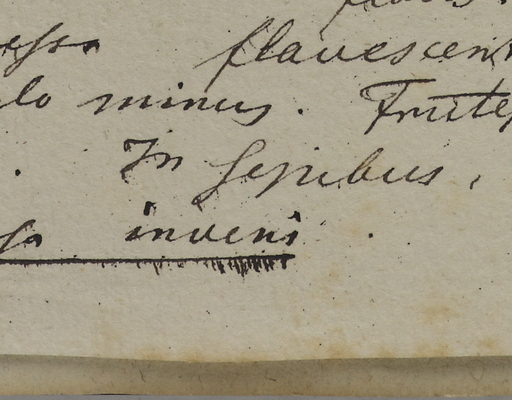 flavescent
lo minus. Frutex
. In sepibus,
inveni .